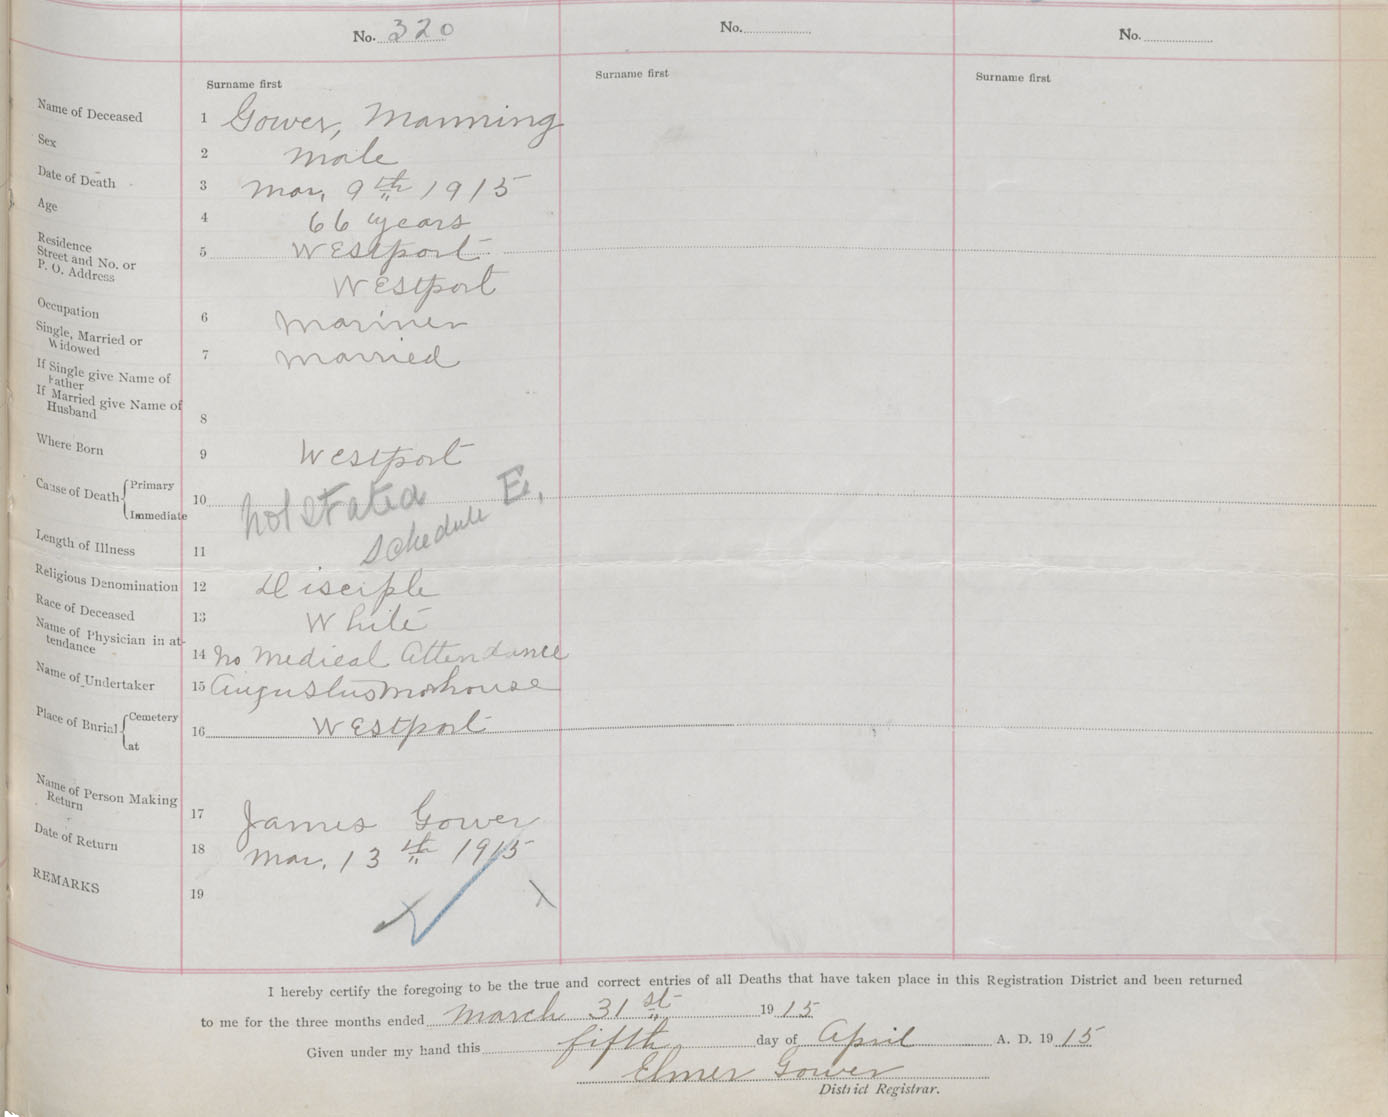 No. 320 No. No.
Surname first Surname first Surname first
Name of Deceased 1 Gower, Manning
Sex 2 Male
Date of Death 3 Mar. 9th 1915
Age 4 66 years
Residence
Street and No. or 5 Westport
P. O. Address
Westport
Occupation 6 Mariner
Single, Married or
Widowed 7 Married
If Single give Name of
Father
If Married give Name of
Husband 8
Where Born 9 Westport
Cause of Death { Primary
10 Not Stated E.
Immediate
Schedule
Length of Illness 11
Religious Denomination 12 Disciple
Race of Deceased 13 White
Name of Physician in at-
tendance 14 No Medical Attendance
Name of Undertaker 15 Augustus Morhouse
Place of Burial { Cemetery
16 Westport
at
Name of Person Making
Return 17 James Gower
Date of Return 18 Mar. 13th 1915
REMARKS 19
I hereby certify the foregoing to be the true and correct entries of all Deaths that have taken place in this Registration District and been returned
to me for the three months ended March 31st 1915
Given under my hand this fifth day of April A. D. 1915
Elmer Gower
District Registrar.